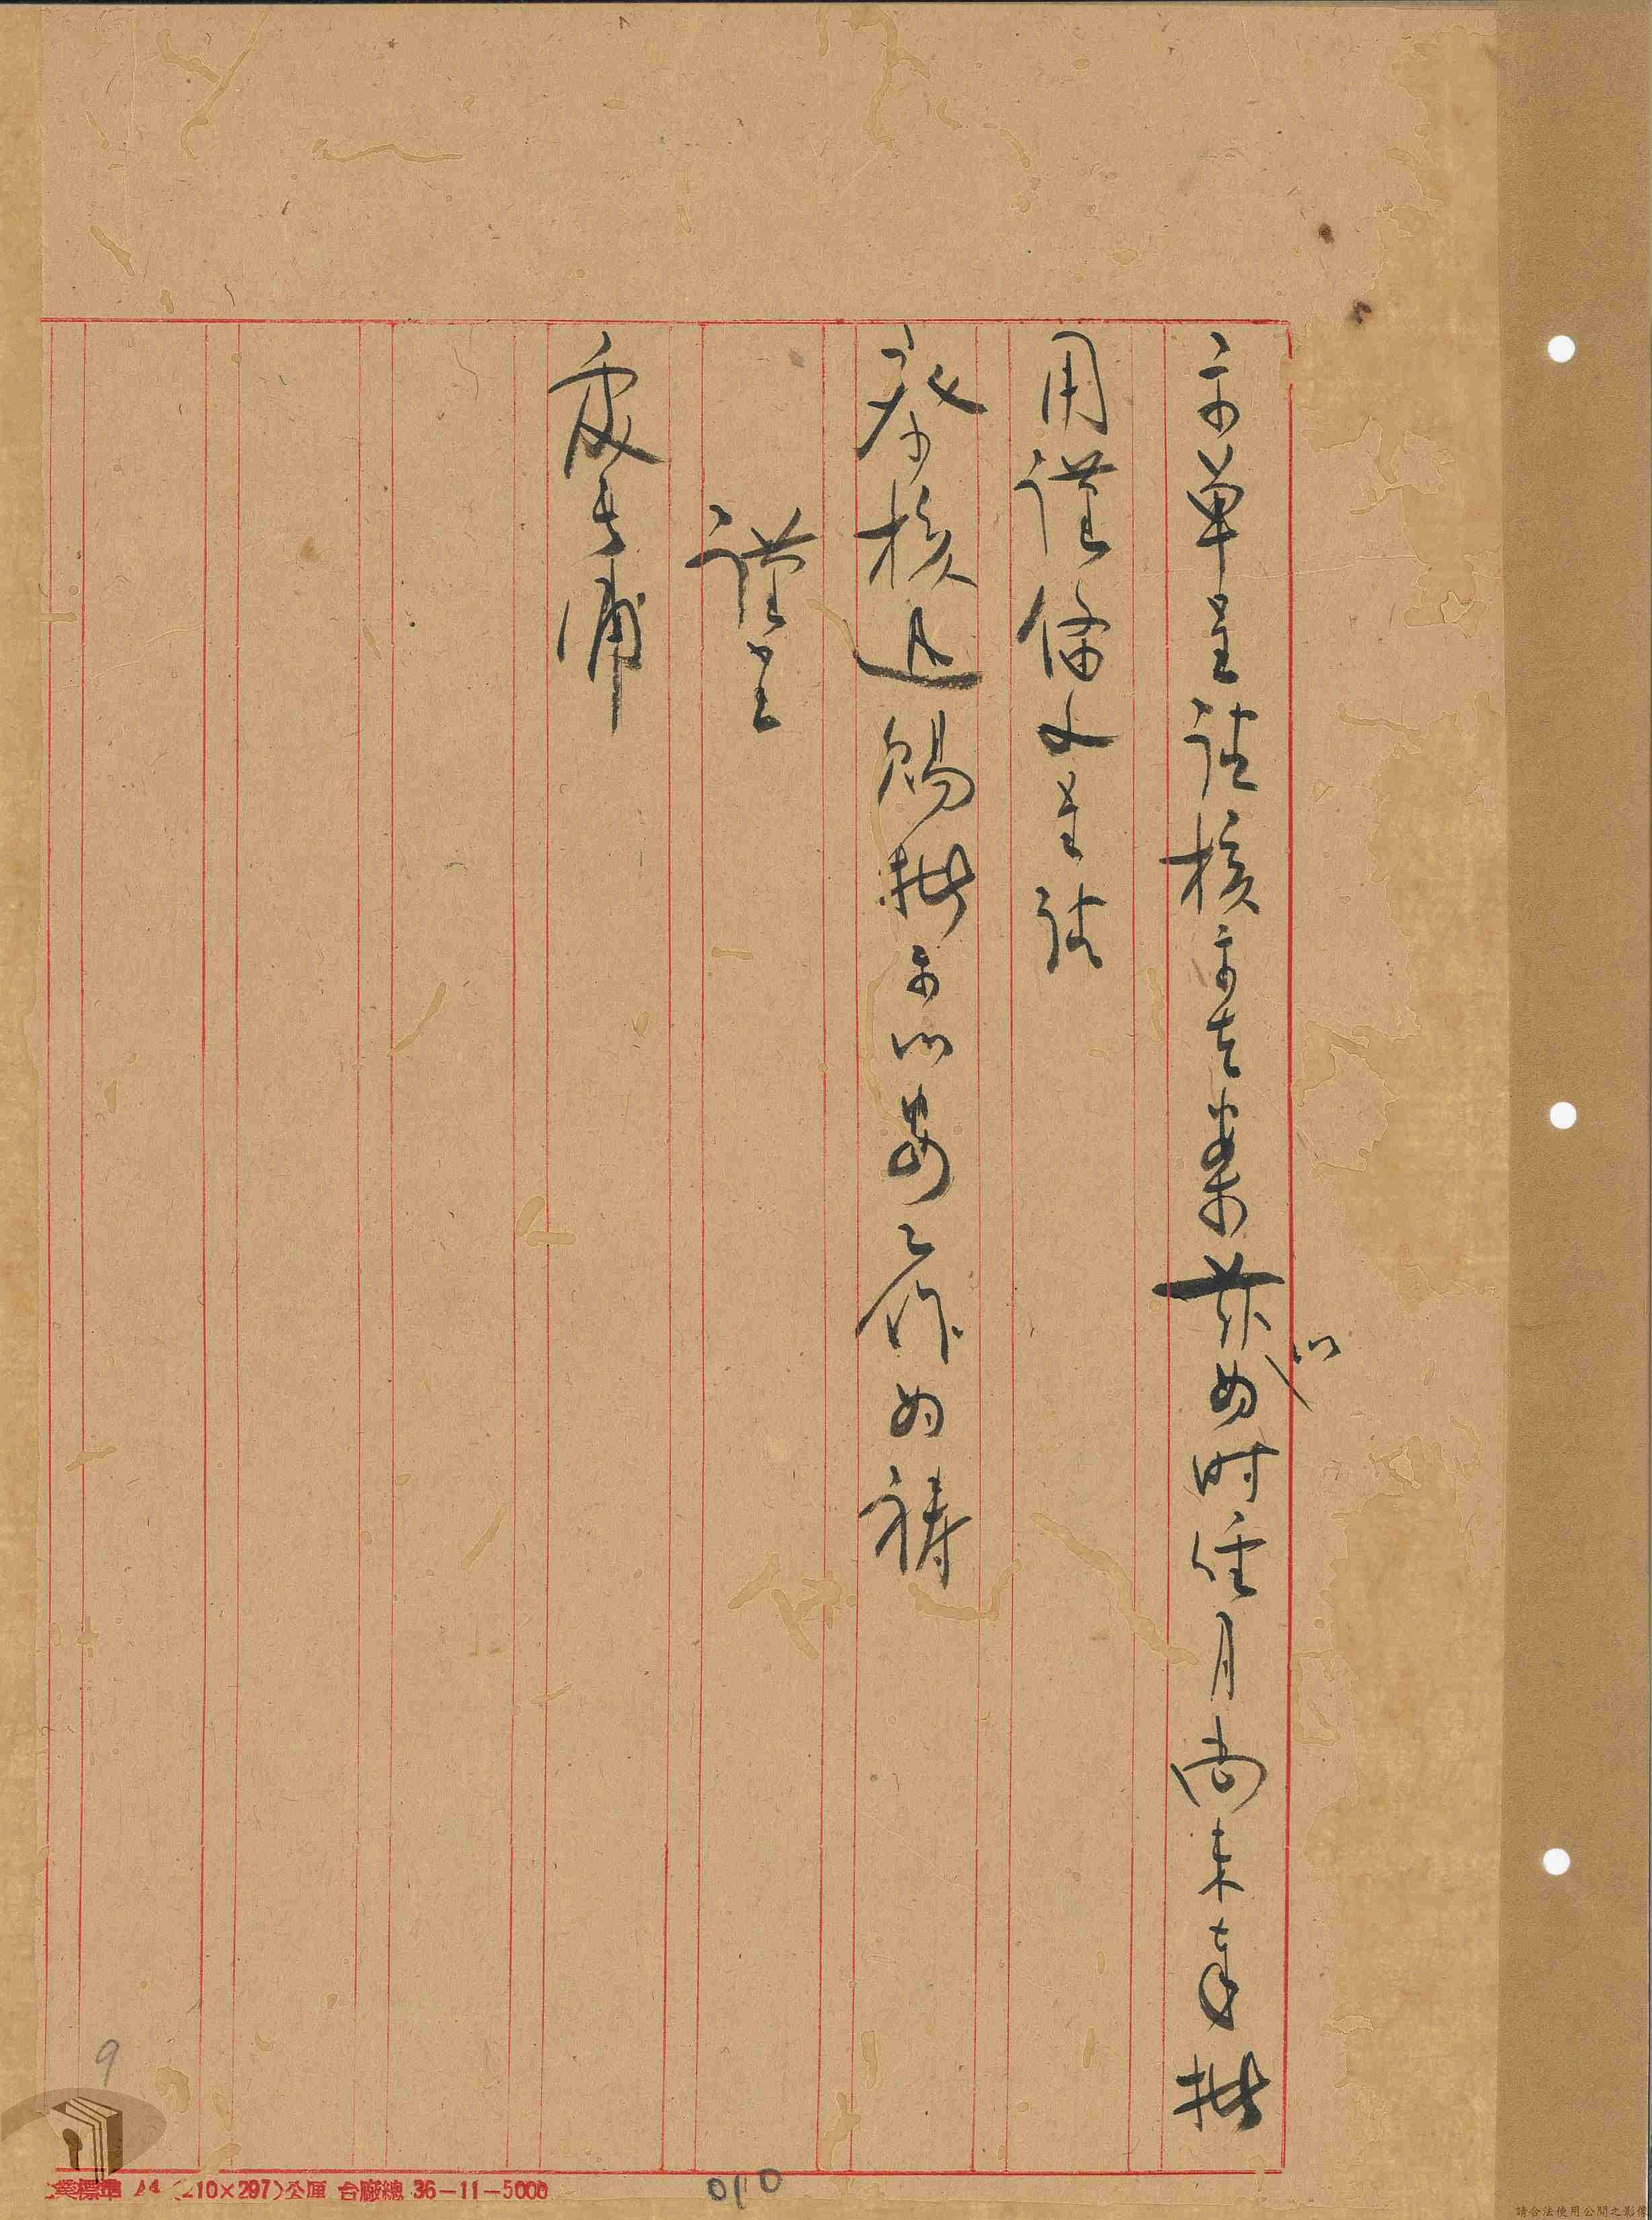 示單呈請核示去案茲以為時經月尚未奉批
用謹備文呈請
察核迅賜批示以安工作為禱
謹呈
處長浦
9
業標準 A4 (210×297)公厘 台廠總 36-11-5000
010
請合法使用公開之影像